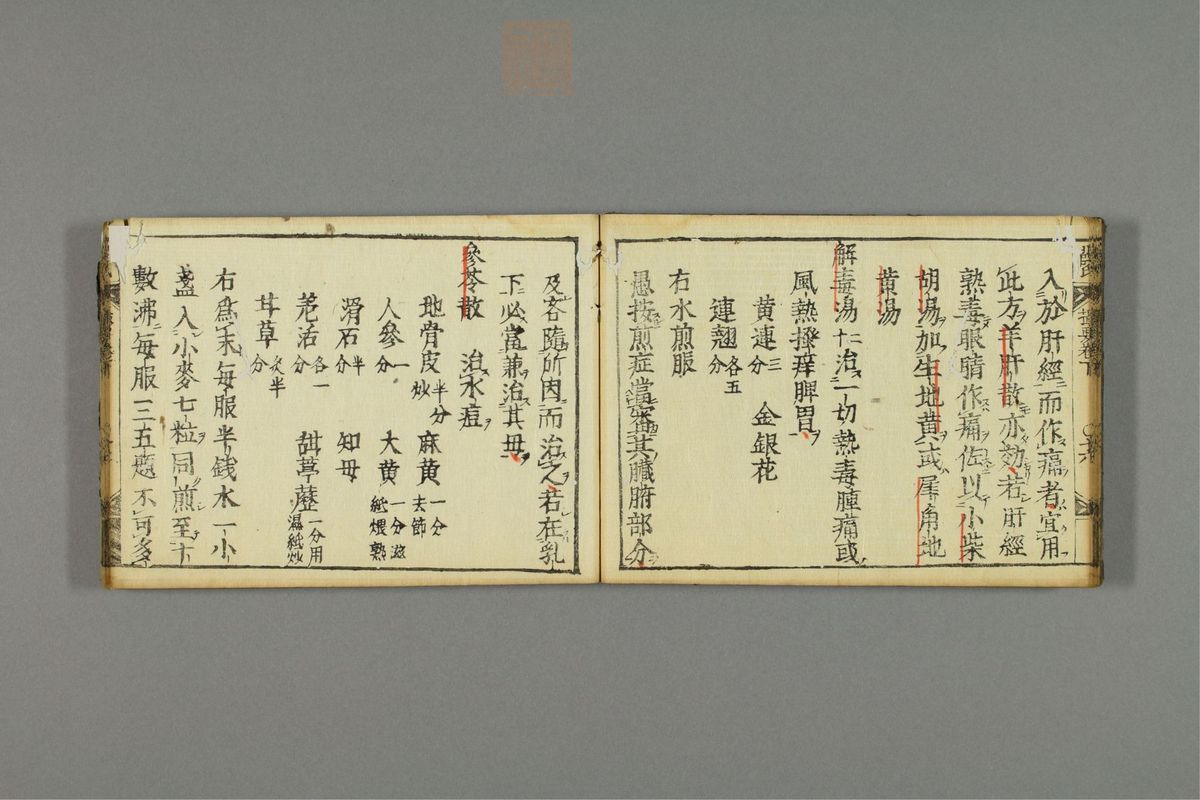 入於肝經而作痛者宜用
此方羊肝散亦効若肝經
熱毒眼睛作痛佐以小柴
胡湯加生地黄或犀角地
黄湯
解毒湯十二治一切熱毒腫痛或
風熱搔痒脾胃
黄連三分 金銀花
連翹各五分
右水煎服
愚按煎症當審其臓腑部分
及各隨所因而治之若在乳
下必當兼治其母
參苓散 治水痘
地骨皮半分炒 麻黄一分去節
人參一分 大黄一分滋紙煨熟
滑石半分 知母
羌活各一分 甜葶藶一分用濕紙炒
甘草炙半分
右爲末毎服半銭水一小
盞入小麥七粒同煎至十
數沸毎服三五匙不可多